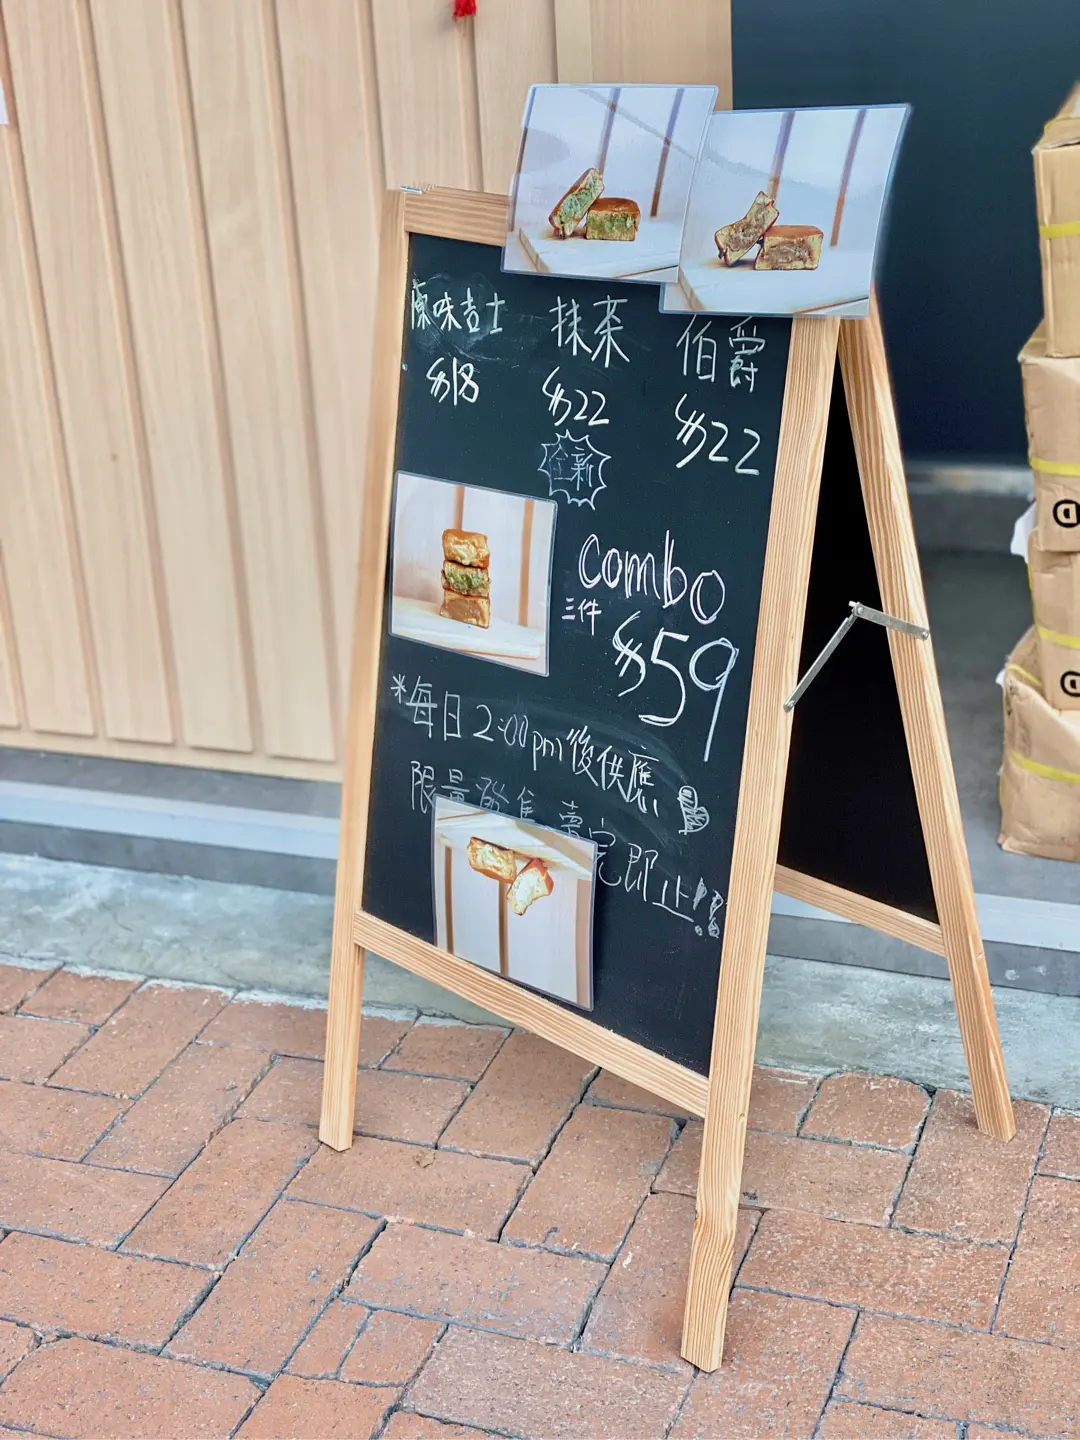 原味吉士 抹茶 伯爵
$18 $22 $22
全新
Combo
三件 $59
*每日 2:00pm後供應
限量發售 賣完即止!!